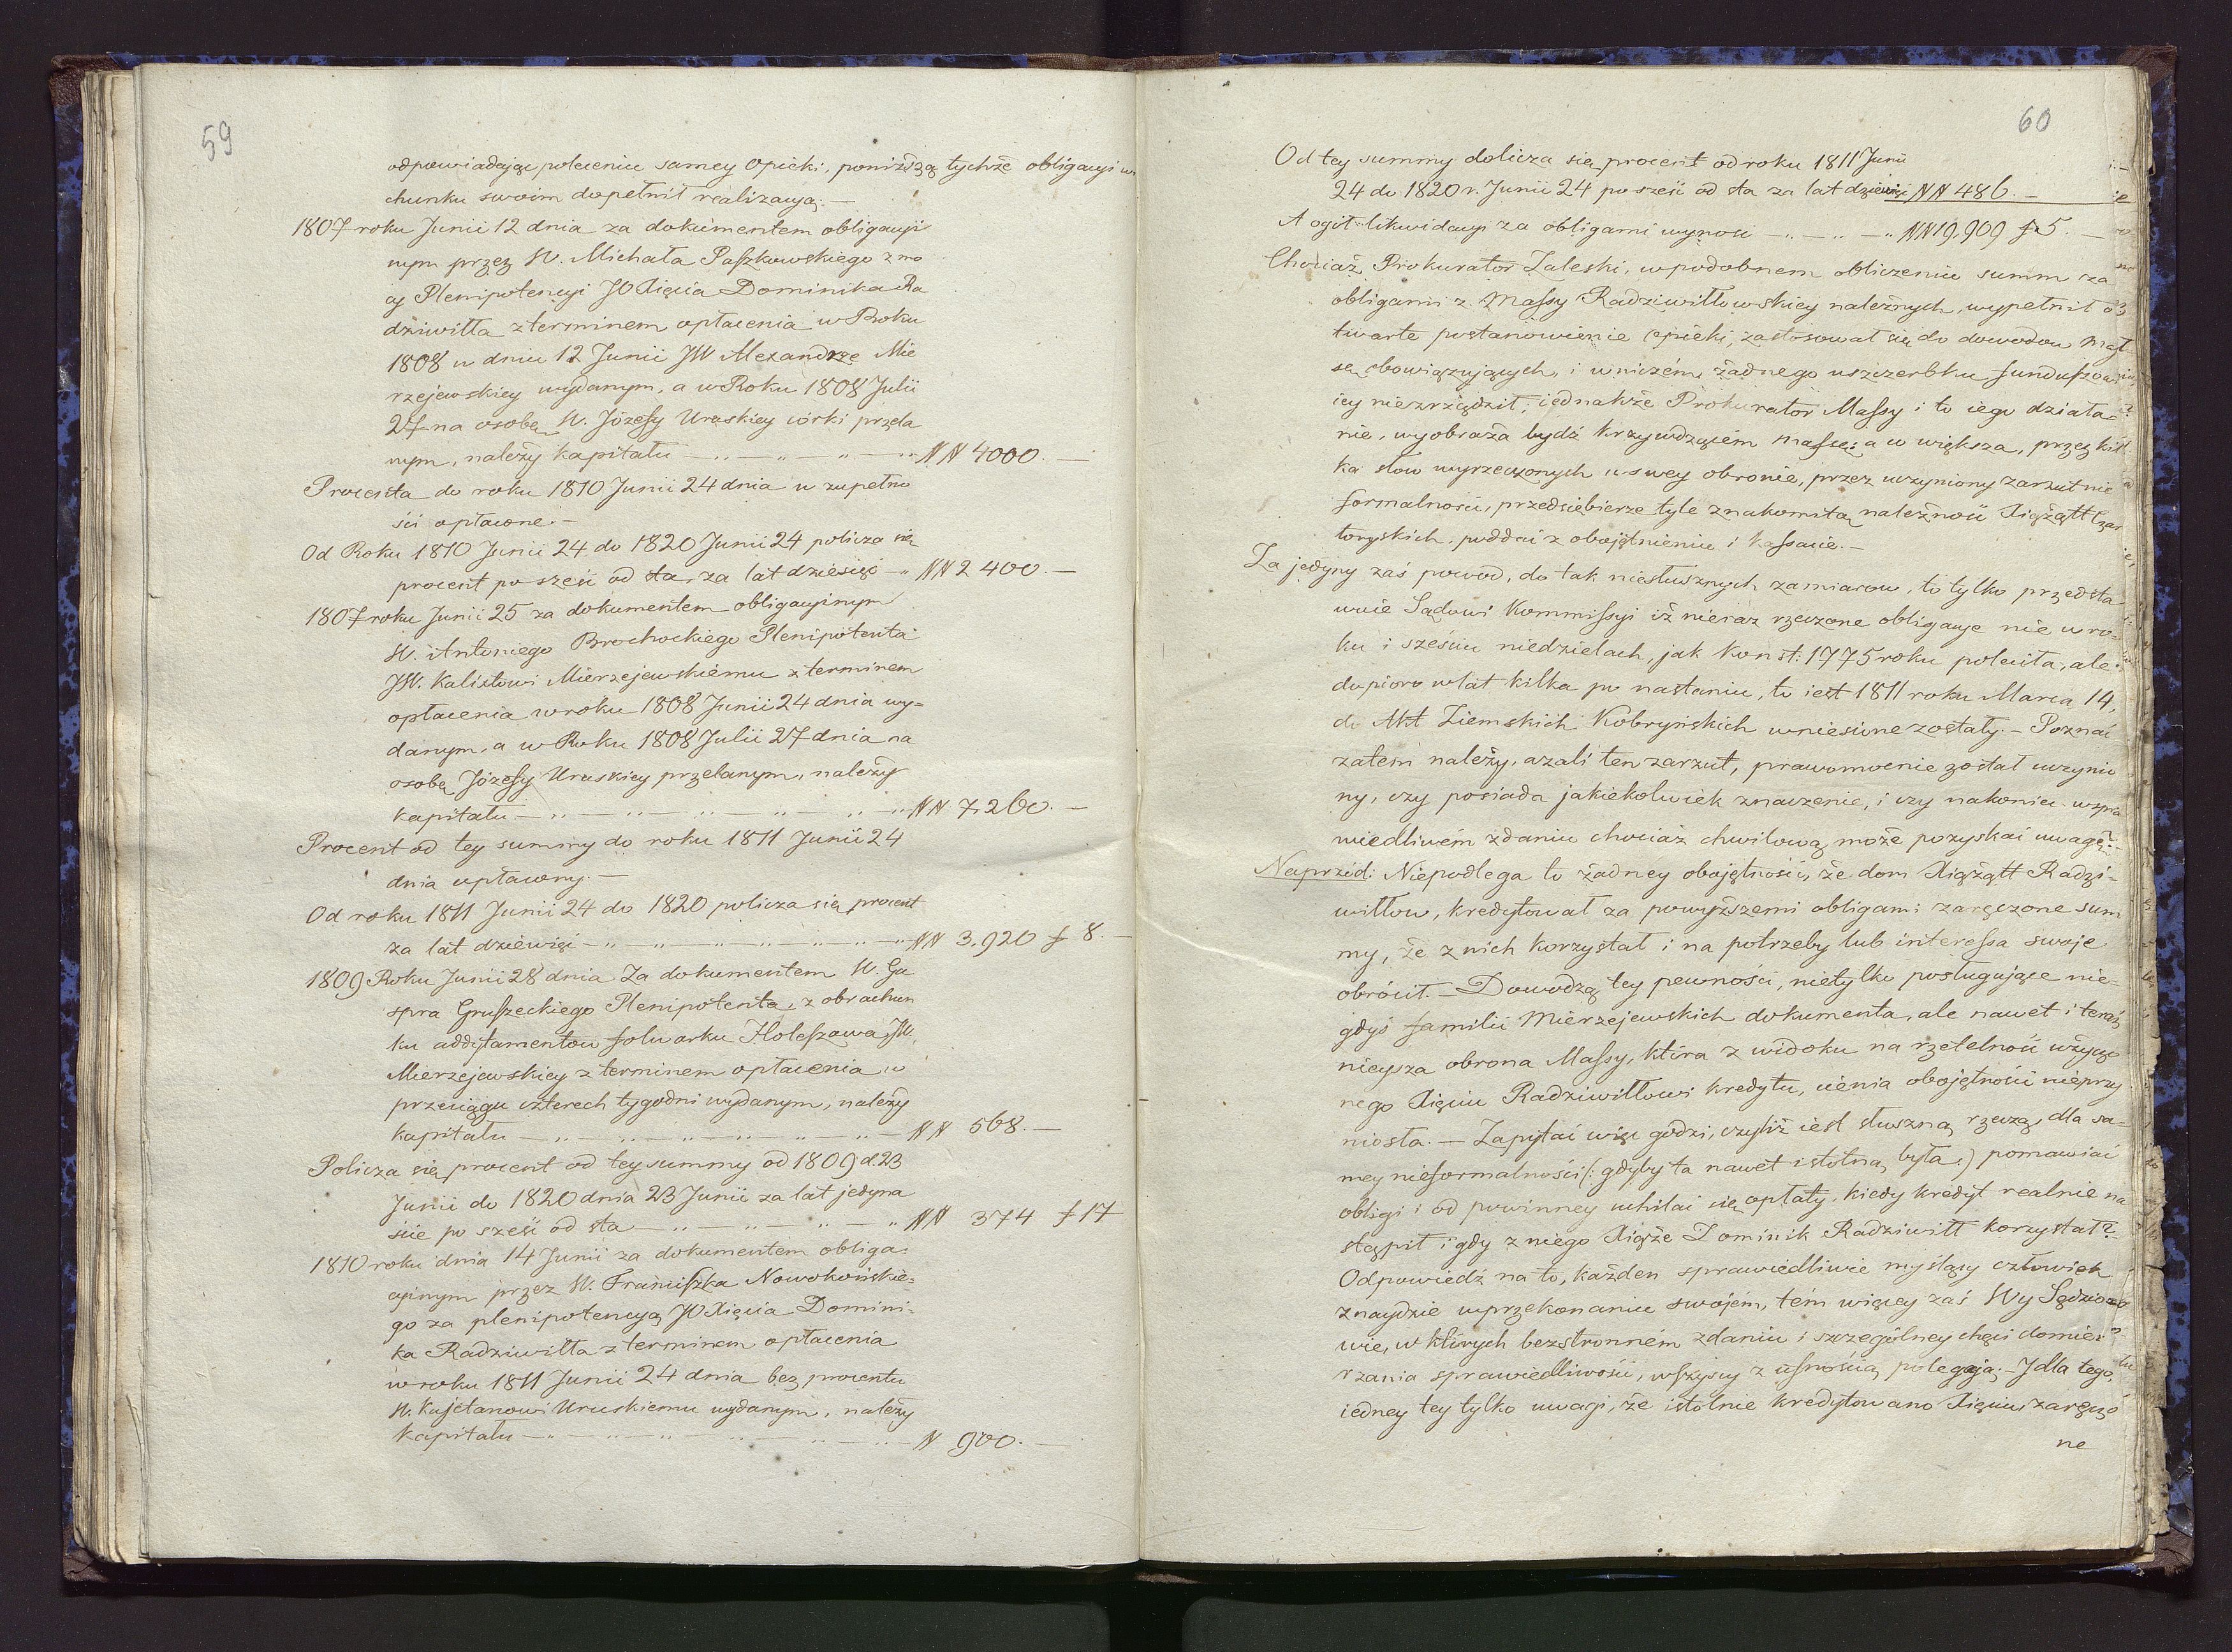 59
odpowiadając poleceniu samey Opieki, poniższą tychże obligacyi w
chunku swoim dopełnił realizacyą.—
1807 roku Junii 12 dnia za dokumentem obligacyi
nym przez W. Michała Paszkowskiego z mo
cy Plenipotencyi JO Xięcia Dominika Ra
dziwiłła z terminem opłacenia w Roku
1808 w dniu 12 Junii JW Alexandrze Mie
rzejewskiey wydanym, a w Roku 1808 Julii
27 na osobę W. Józefy Uruskiey córki przela
nym, należy kapitału — „ — „ — „ — „ NN 4000. —
Procenta do roku 1810 Junii 24 dnia w zupełno
ści opłacone.—
Od Roku 1810 Junii 24 do 1820 Junii 24 policza się
procent po sześć od sta, za lat dziesięć — „ NN 2400. —
1807 roku Junii 25 za dokumentem obligacyinym
W. Antoniego Brochockiego Plenipotenta
JW. Kalixtowi Mierzejewskiemu z terminem
opłacenia w roku 1808 Junii 24 dnia wy=
danym, a w Roku 1808 Julii 27 dnia na
osobę Józefy Uruskiey przelanym, należy
kapitału — „ — „ — „ — „ — „ NN 7,260. —
Procent od tey summy do roku 1811 Junii 24
dnia opłacony.—
Od roku 1811 Junii 24 do 1820 policza się procent
za lat dziewięć — „ — „ — „ — „ — „ NN 3,920 f 8. —
1809 Roku Junii 28 dnia Za dokumentem W. Ga
spra Gruszeckiego Plenipotenta, z obrachun
ku addytamentow folwarku Holeszawa JW.
Mierzejewskiey z terminem opłacenia w
przeciągu czterech tygodni wydanym, należy
kapitału — „ — „ — „ — „ — „ — NN 568. —
Policza się procent od tey summy od 1809 d. 23
Junii do 1820 dnia 23 Junii za lat jedyna
ście po sześć od sta — „ — „ — „ — „ NN 374 f 17
1810 roku dnia 14 Junii za dokumentem obliga=
cyinym przez W. Franciszka Nowokońskie=
go za plenipotencyą JO Xięcia Domini=
ka Radziwiłła z terminem opłacenia
w roku 1811 Junii 24 dnia bez procentu
W. Kajetanowi Uruskiemu wydanym, należy
Kapitału — „ — „ — „ — „ — „ — N 900. —
60
Od tey summy dolicza się procent od roku 1811 Junii
24 do 1820 r. Junii 24 po sześć od sta za lat dziewięć NN 486. —
A ogół likwidacyi za obligami wynosi — „ — „ — „ NN 19,909 f 5. —
Chociaż Prokurator Zaleski, w podobnem obliczeniu summ za
obligami z Massy Radziwiłłowskiey należnych, wypełnił o
twarte postanowienie Opieki, zastosował się do dowodow Mas
sę obowiązujących, i w niczém żadnego uszczerbku funduszow
iey niezrządził, iednakże Prokurator Massy i to iego działa=
nie, wyobraża bydź krzywdzącém massę; a w większa, przez kil
ka słow wyrzeczonych w swey obronie, przez uczyniony zarzut nie
formalności, przedsiębierze tyle znakomitą należność Xiążątt Czar
toryskich, poddać z obojętnieniu i kassacie.—
Za jedyny zaś powod, do tak niesłusznych zamiarow, to tylko przedsta
wuie Sądowi Kommissyi iż nieraz rzeczone obligacye nie w ro=
ku i sześciu niedzielach, jak Konst: 1775 roku poleciła, ale
dopioro w lat kilka po nastaniu, to iest 1811 roku Marca 14,
do Akt Ziemskich Kobryńskich wniesione zostały.— Poznać
zatem należy, azali ten zarzut, prawomocnie został uczynio
ny, czy posiada jakiekolwiek znaczenie, i czy nakoniec w spra
wiedliwém zdaniu chociaż chwilową może pozyskać uwagę?
Naprzód: Niepodlega to żadney obojętności, że dom Xiążątt Radzi=
wiłłow, kredytował za powyższemi obligami zaręczone sum
my, że z nich korzystał i na potrzeby lub interessa swoje
obrócił.— Dowodzą tey pewności, nietylko posługujące nie=
gdyś familii Mierzejewskich dokumenta, ale nawet i teraź
nieysza obrona Massy, która z widoku na rzetelność użyczo
nego Xięciu Radziwiłłowi kredytu, cienia obojętności nieprzy
niosła.— Zapytać więc godzi, czyliż iest słuszną rzeczą, dla sa=
mey nieformalności (: gdyby ta nawet istotną była :) pomawiać
obligi i od powinney uchilać się opłaty, kiedy kredyt realnie na
stąpił i gdy z niego Xiąże Dominik Radziwiłł korzystał?—
Odpowiedź na to, każden sprawiedliwie myślący człowiek
znaydzie w przekonaniu swojém, tém więcey zaś Wy Sędzio
wie, w których bezstronném zdaniu i szczególney chęci domie=
rzania sprawiedliwości, wszyscy z ufnością polegają.— I dla tego,
iedney tey tylko uwagi, że istotnie kredytowano Xięciu zaręczo
ne